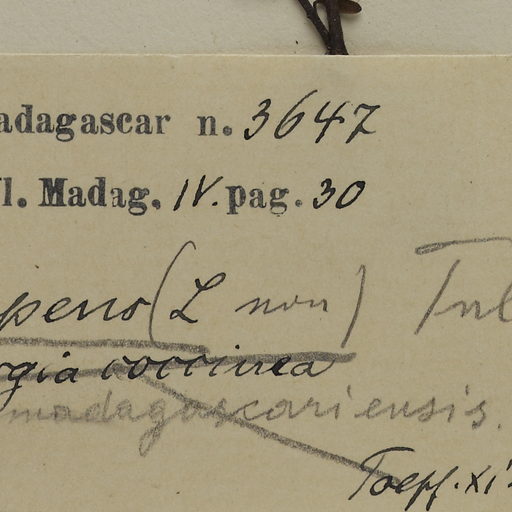 adagascar n. 3647
l. Madag. IV. pag. 30
(L non)
gia coccinea
madagascariensis.
Toepf. XI